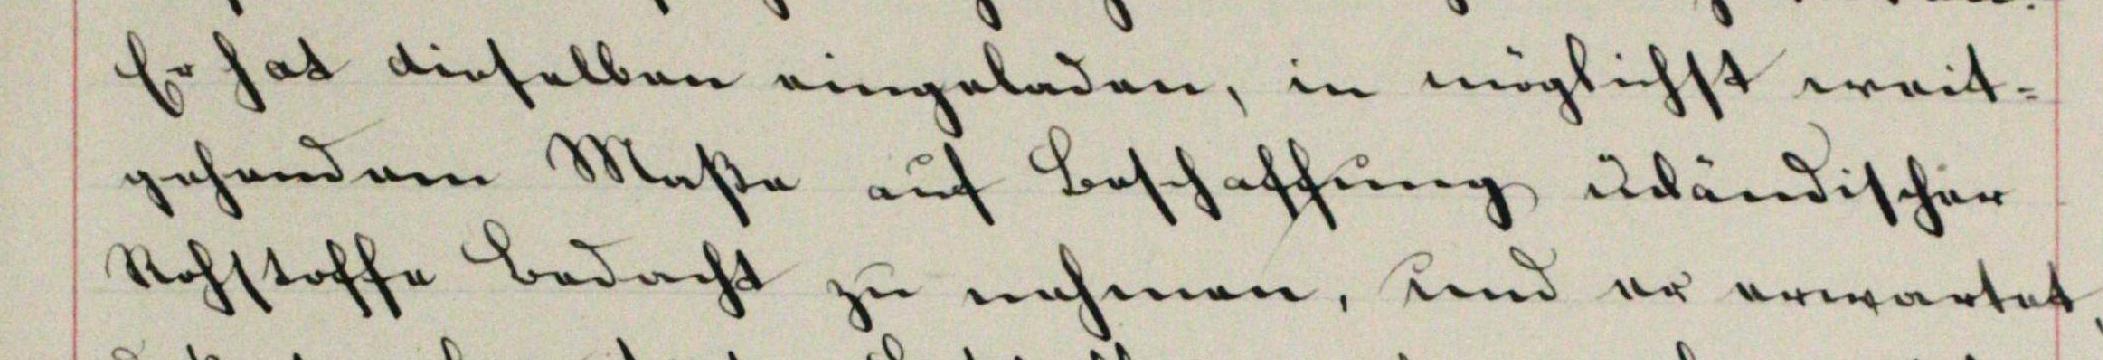 Er hat dieselben eingeladen, in möglichst weit-
gehendem Maße auf Beschaffung
Rohstoffe Bedacht zu nehmen, und er erwartet,